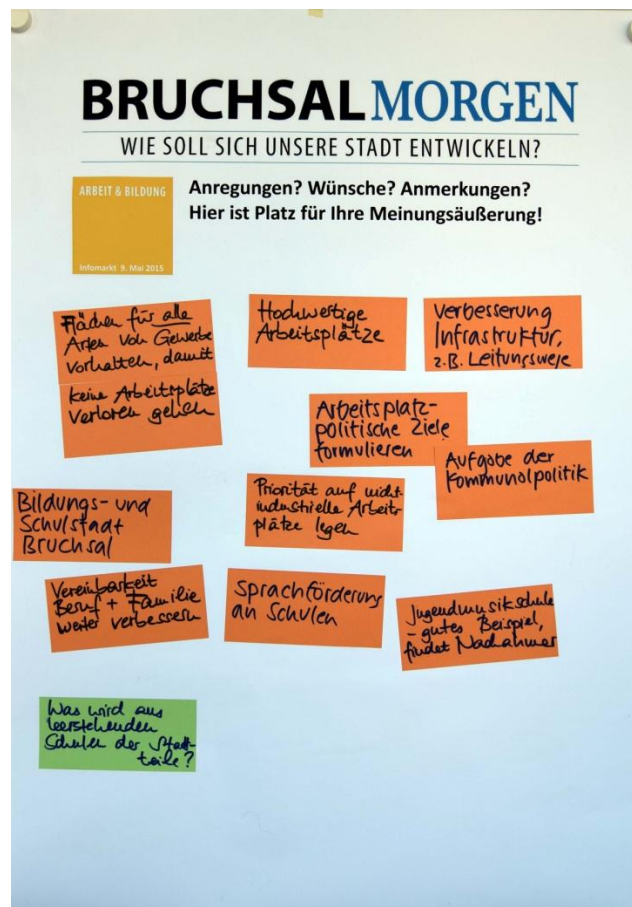 BRUCHSALMORGEN
WIE SOLL SICH UNSERE STADT ENTWICKELN?
ARBEIT & BILDUNG
Infomarkt 9. Mai 2015
Anregungen? Wünsche? Anmerkungen?
Hier ist Platz für Ihre Meinungsäußerung!
Flächen für alle
Arten von Gewerbe
vorhalten, damit
keine Arbeitsplätze
verloren gehen
Hochwertige
Arbeitsplätze
Verbesserung
Infrastruktur,
z.B. Leitungswege
Arbeitsplatz-
politische Ziele
formulieren
Aufgabe der
Kommunalpolitik
Priorität auf nicht-
industrielle Arbeits
plätze legen
Bildungs- und
Schulstadt
Bruchsal
Vereinbarkeit
Beruf + Familie
weiter verbessern
Sprachförderung
an Schulen
Jugendmusikschule
- gutes Beispiel,
findet Nachahmer
Was wird aus
leerstehenden
Schulen der Stadt-
teile?